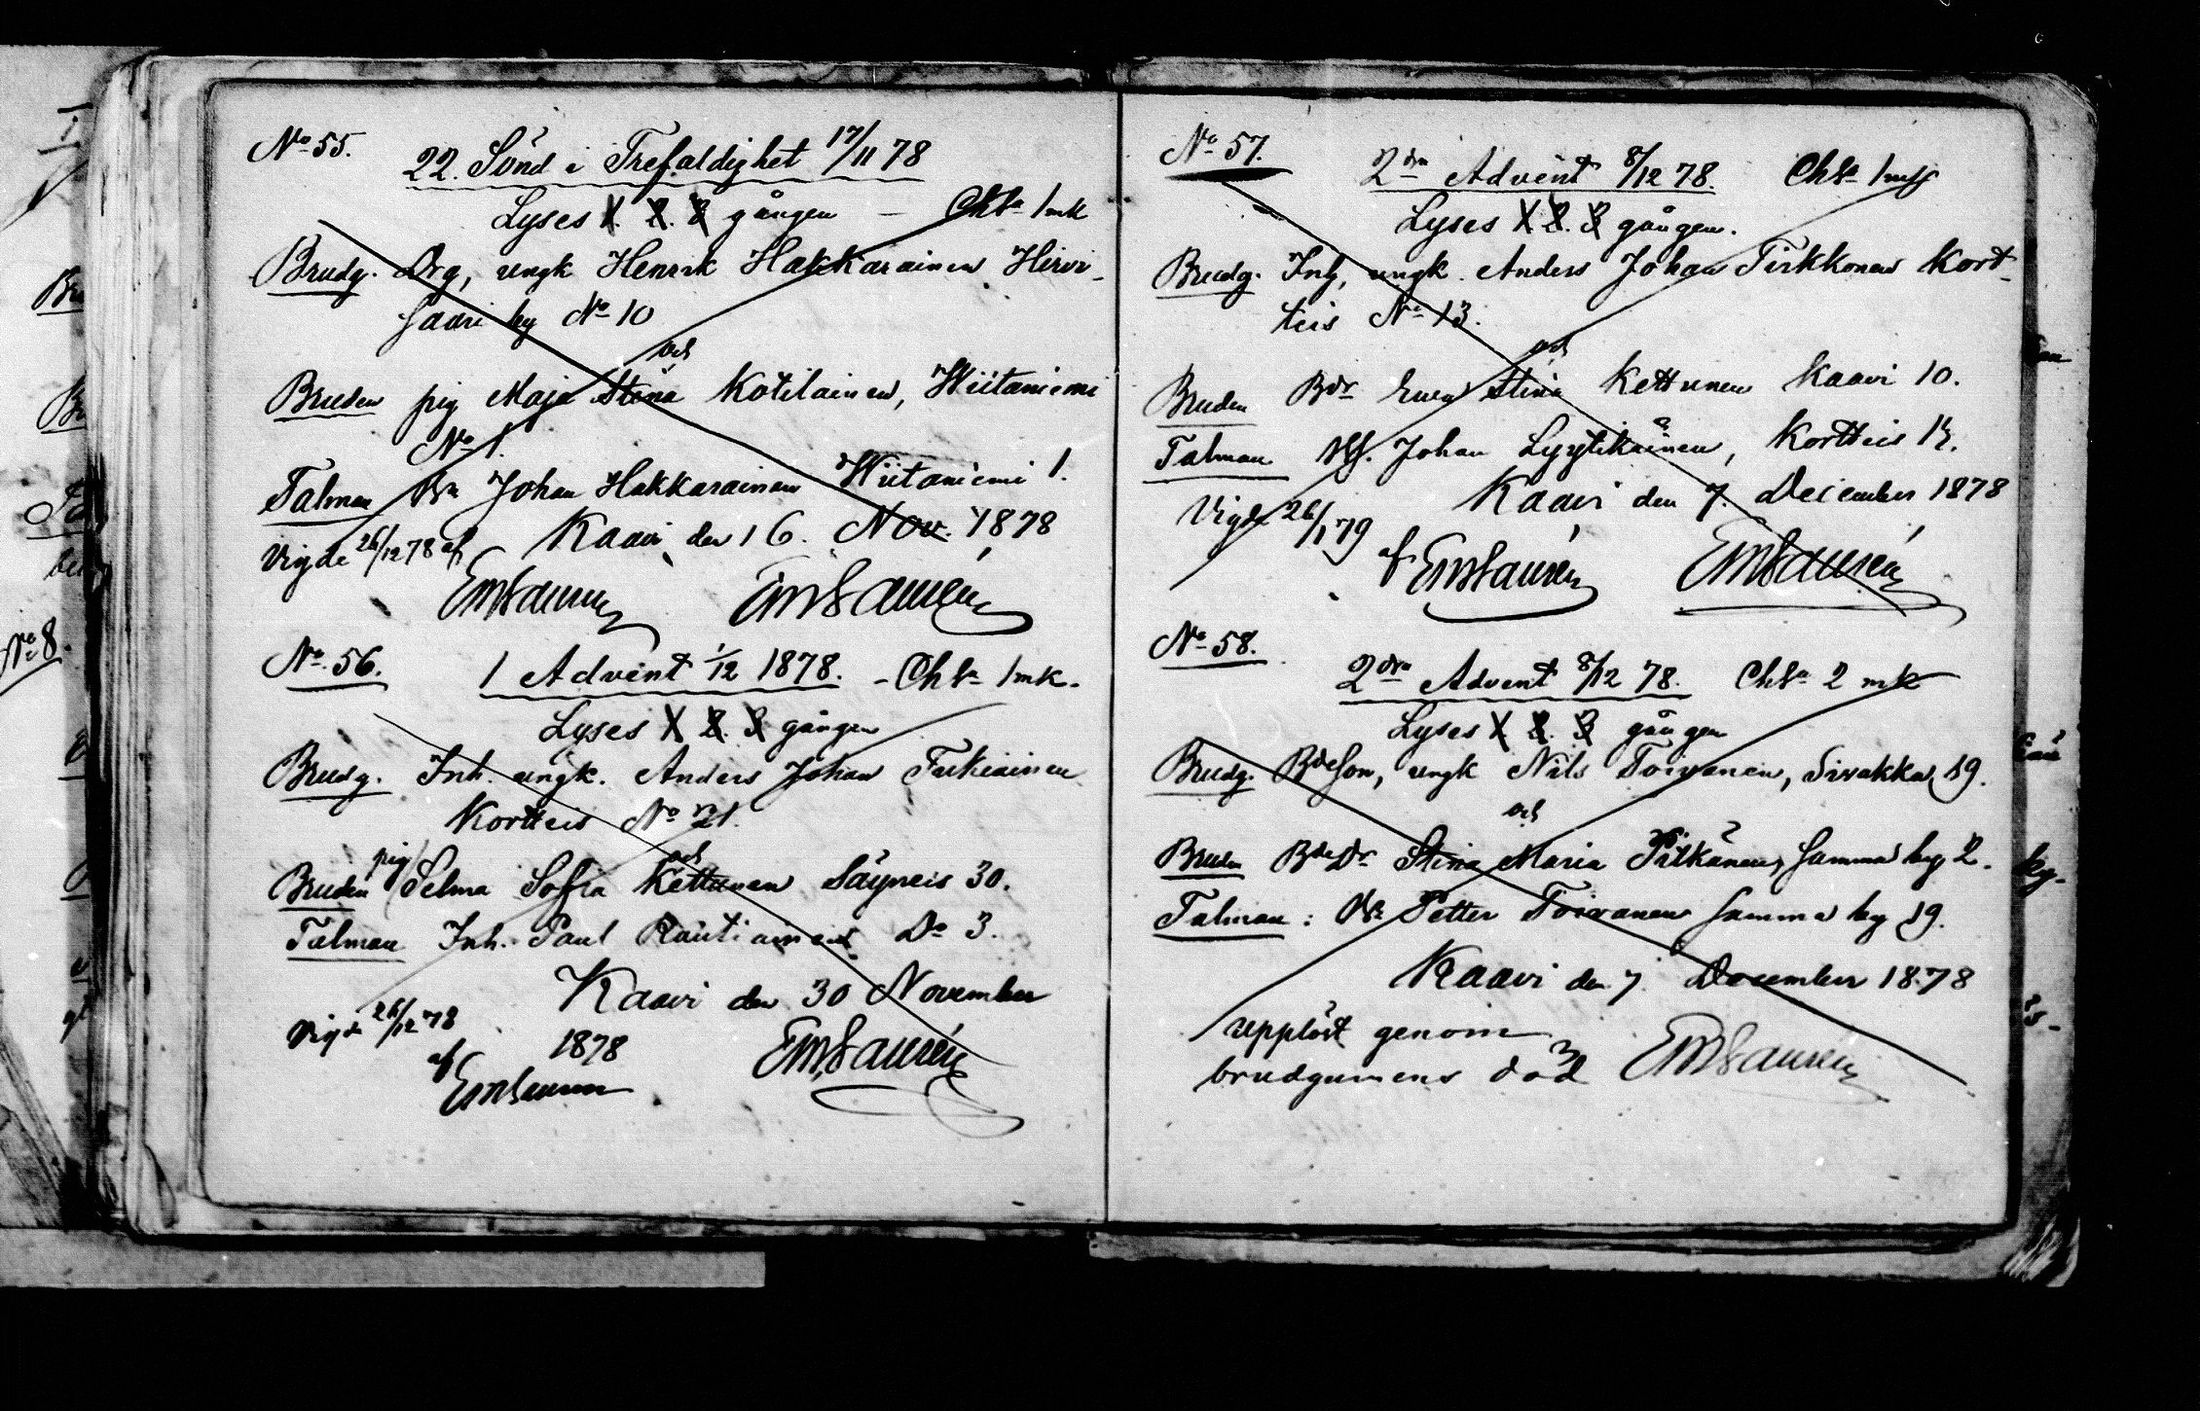 No 55.
22. Sönd e Trefaldighet 17/11 78
Lyses 1. 2. 3 gången — Chta 1 mk
Brudg. Drg, ungk Henrik Hakkarainen Hirvi-
saari by No 10
och
Bruden pig Maja Stina Kotilainen, Wiitaniemi
No 1.
Talman Johan Hakkarainen Wiitaniemi 1.
Kaavi den 16. Nov. 1878
Vigde 26/12 78 af
EmSaurén EmSaurén
No. 56.
1 Advent 1/12 1878. - Chta 1 mk.
Lyses 1 2. 3 gången
Brudg. Inh. ungk. Anders Johan Turkiainen
Kortteis No 21.
och
Bruden pig Selma Sofia Kettunen Säyneis 30.
Talman Inh. Paul Rautiainen Do 3.
Kaavi den 30 November
1878
Vigde 26/12 78
af
EmSaurén EmSaurén
No 57.
2dra Advent 8/12 78. Chta 1 mk
Lyses 1 2. 3 gången.
Brudg. Inh, ungk. Anders Johan Tirkkonen Kort-
teis No 13.
och
Bruden Bdr Eva Stina Kettunen Kaavi 10.
Talman Johan Lyytikäinen, Kortteis
Kaavi den 7. December 1878
Vigde 26/1 79
af EmSaurén EmSaurén
No 58.
2dra Advent 8/12 78. Chta 2 mk
Lyses 1 2. 3 gången
Brudg. Bdeson, ungk Nils Toivanen, Sivakka 19.
och
Bruden BdeDr Stina Maria Pitkänen, samma by 2.
Talman: Petter Toivanen samma by 19.
Kaavi den 7. December 1878
upplöst genom
brudgumens död EmSaurén
No 8.